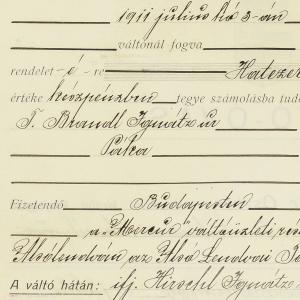 1911 július hó 3-án
váltónál fogva
rendelet-é-re Hatezer
értéke készpénzben tegye számolásba tud
T. Brandl Ignátz úr
Páka
Fizetendő Budapesten
a "Mercur" váltóüzleti
Alsólendván az Alsó Lendvai
A váltó hátán: ifj. Hirschl Ignátz